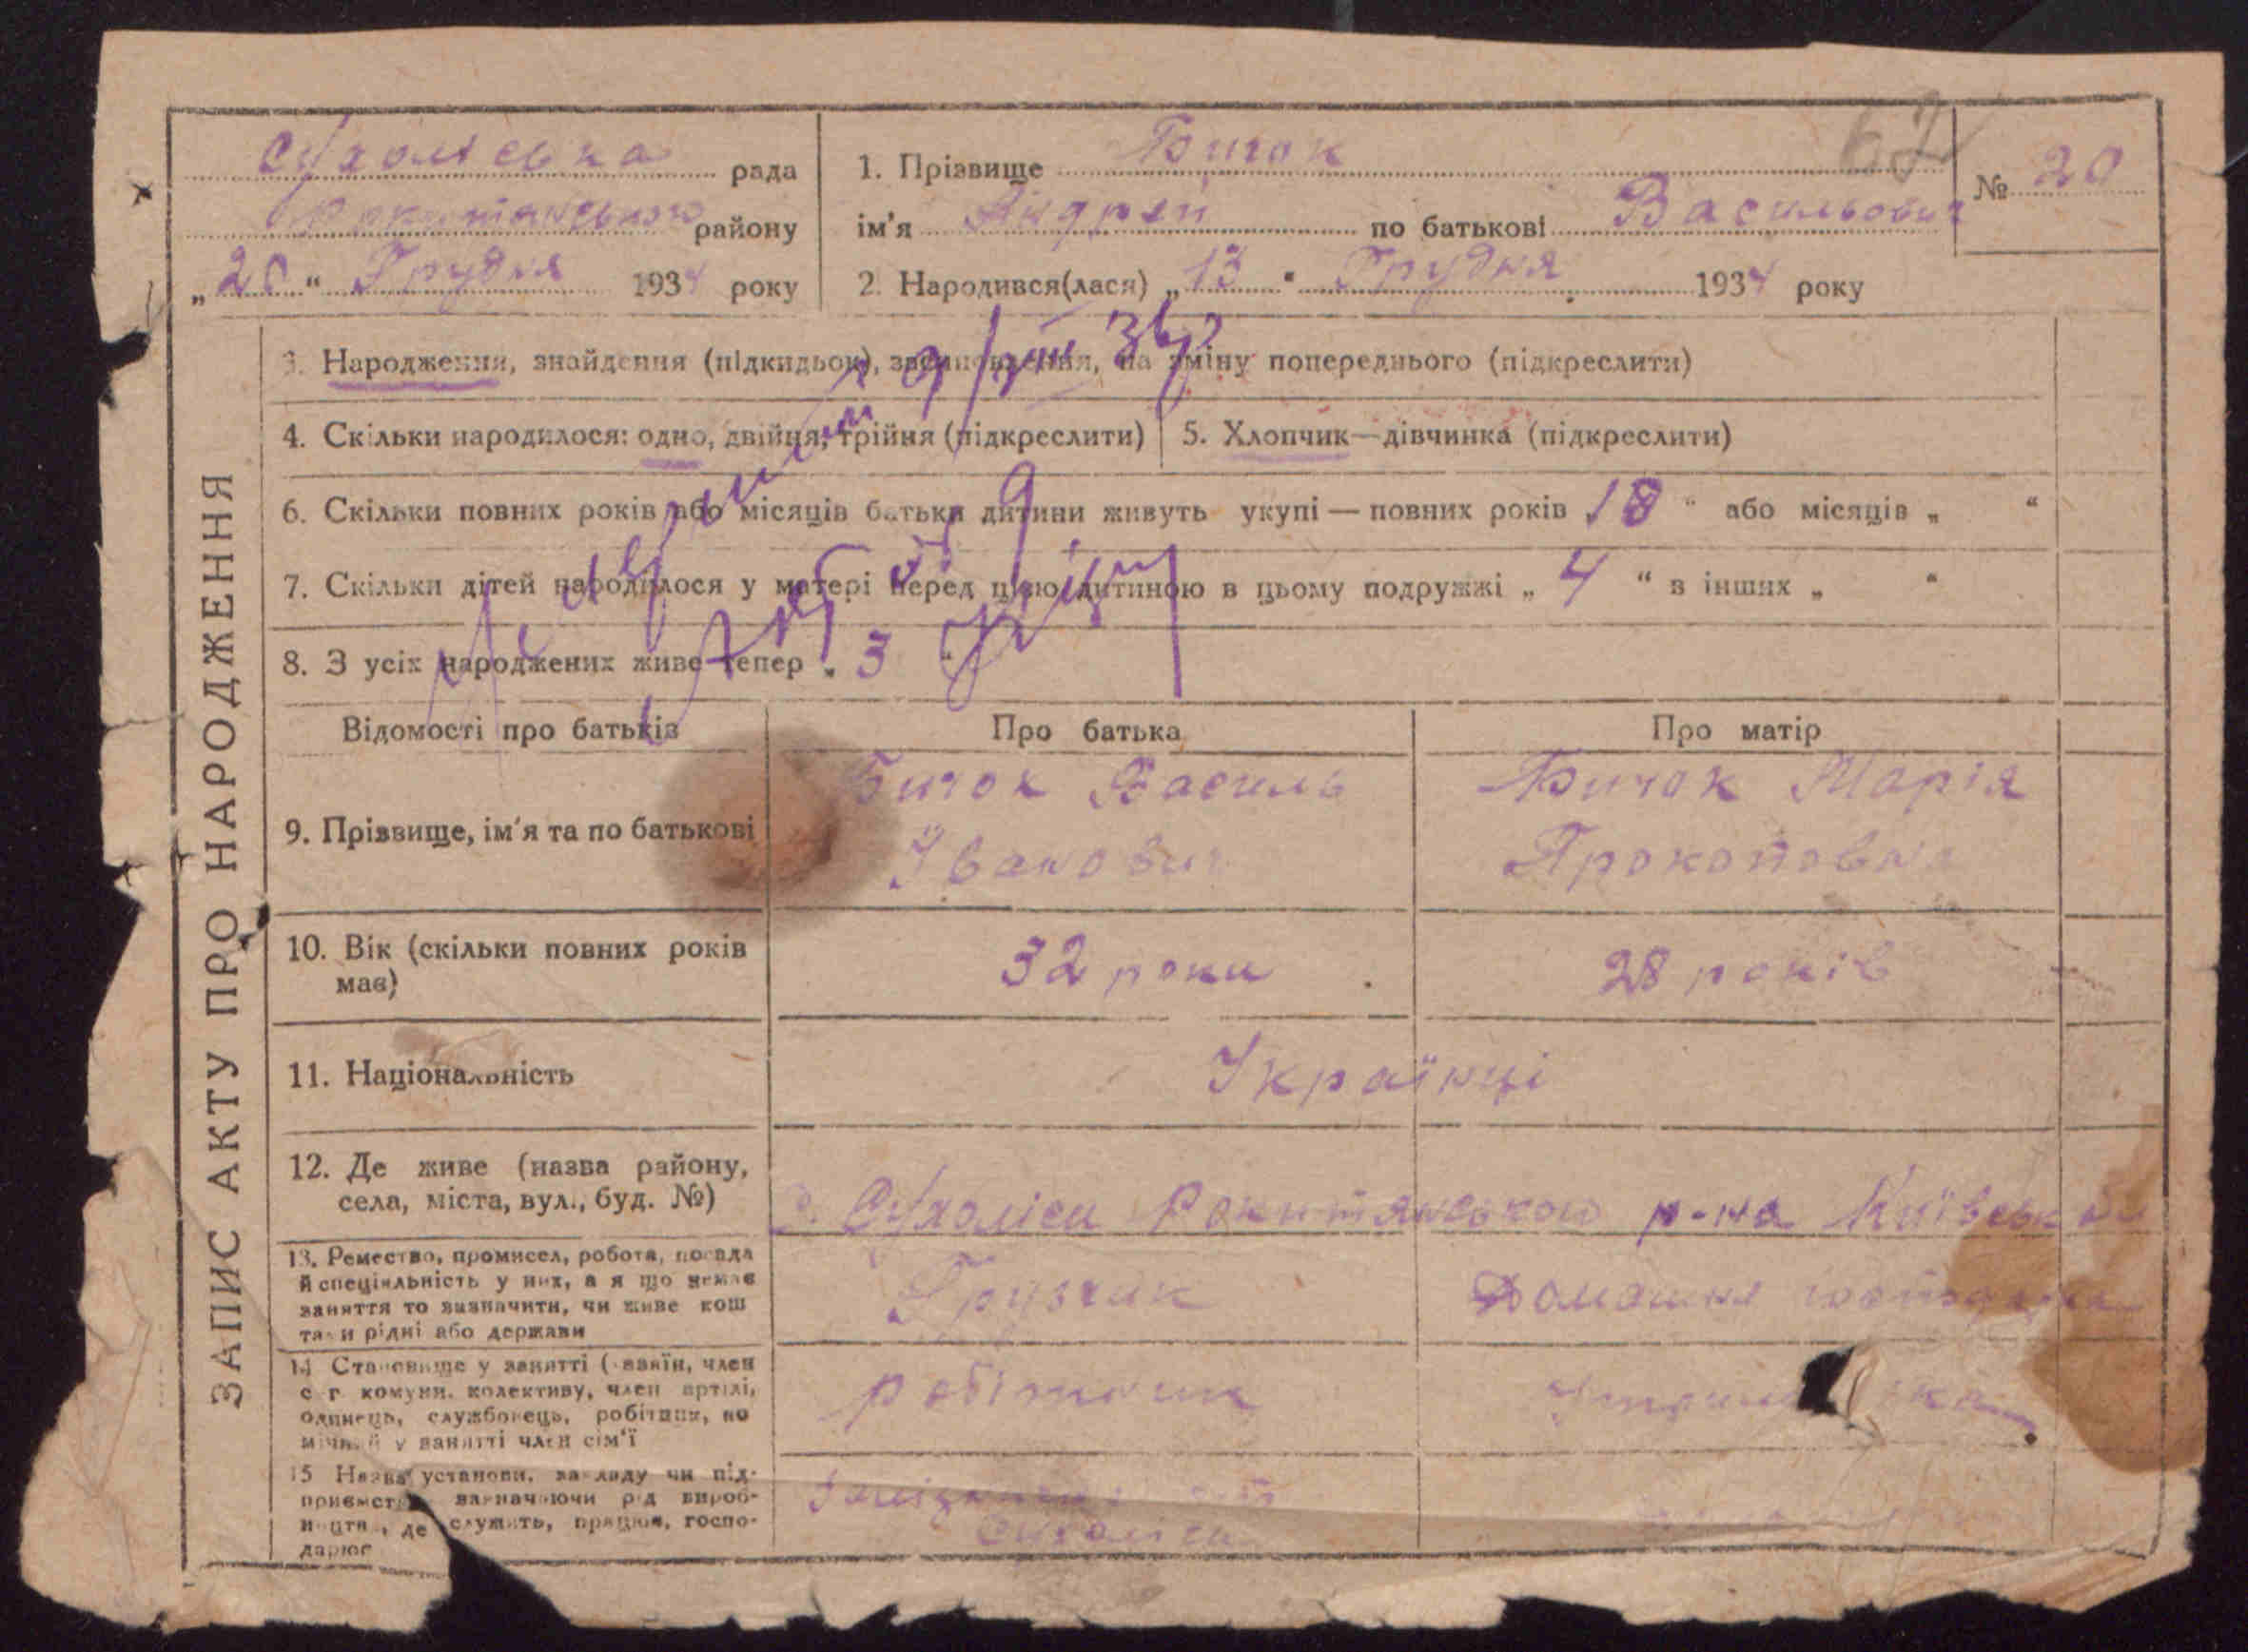 Сухоліська рада
Рокитянського району
„20“ Грудня 1934 року
1. Прізвище Бичок
ім'я Андрей по батькові Васильович
2. Народився(лася) „13“ Грудня 1934 року
62
№ 20
ЗАПИС АКТУ ПРО НАРОДЖЕННЯ
3. Народження, знайдення (підкидьок), засиновлення, на зміну попереднього (підкреслити)
4. Скільки народилося: одно, двійня, трійня (підкреслити)
5. Хлопчик—дівчинка (підкреслити)
6. Скільки повних років або місяців батьки дитини живуть укупі — повних років 18 “ або місяців „ “
7. Скільки дітей народилося у матері перед цією дитиною в цьому подружжі „ 4 “ в інших „ “
8. З усіх народжених живе тепер „ 3 “
Відомості про батьків
Про батька
Про матір
9. Прізвище, ім'я та по батькові
Бичок Василь
Іванович
Бичок Марія
Прокоповна
10. Вік (скільки повних років
має)
32 роки
28 років
11. Національність
Українці
12. Де живе (назва району,
села, міста, вул., буд. №)
с. Сухоліси Рокитянського р-на Київської
13. Ремество, промисел, робота, посада
й спеціяльність у них, а якщо немає
заняття то визначити, чи живе кош
тами рідні або держави
Грузчик
Домашня господарка
14 Становище у занятті (хазяїн, член
с г. комуни, колективу, член артілі,
одинець, службовець, робітник, по
мічний у занятті член сім'ї
робітник
15 Назва установи, закладу чи під-
приємства зазначаючи рід вироб-
ництва, де служить, працює, госпо-
дарює
Сухоліси